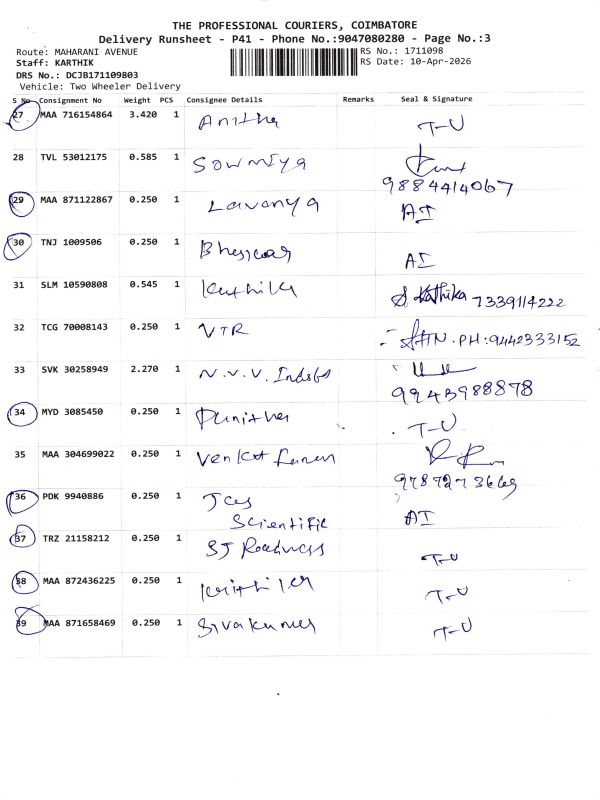 THE PROFESSIONAL COURIERS, COIMBATORE
Delivery Runsheet - P41 - Phone No.:9047080280 - Page No.:3
Route: MAHARANI AVENUE RS No.: 1711098
Staff: KARTHIK RS Date: 10-Apr-2026
DRS No.: DCJB171109803
Vehicle: Two Wheeler Delivery
S No Consignment No Weight PCS Consignee Details Remarks Seal & Signature
27 MAA 716154864 3.420 1 Anitha T-U
28 TVL 53012175 0.585 1 Sowmiya
9884414067
29 MAA 871122867 0.250 1 Lavanya AI
30 TNJ 1009506 0.250 1 AI
31 SLM 10590808 0.545 1 Karthika S. Kathika 7339114222
32 TCG 70008143 0.250 1 VTR PH:9442333152
33 SVK 30258949 2.270 1 N.V.V.
9943988878
34 MYD 3085450 0.250 1 Punitha T-U
35 MAA 304699022 0.250 1 Venkat
36 PDK 9940886 0.250 1
Scientific AI
37 TRZ 21158212 0.250 1 T-U
38 MAA 872436225 0.250 1 T-U
39 MAA 871658469 0.250 1 Sivakumar T-U